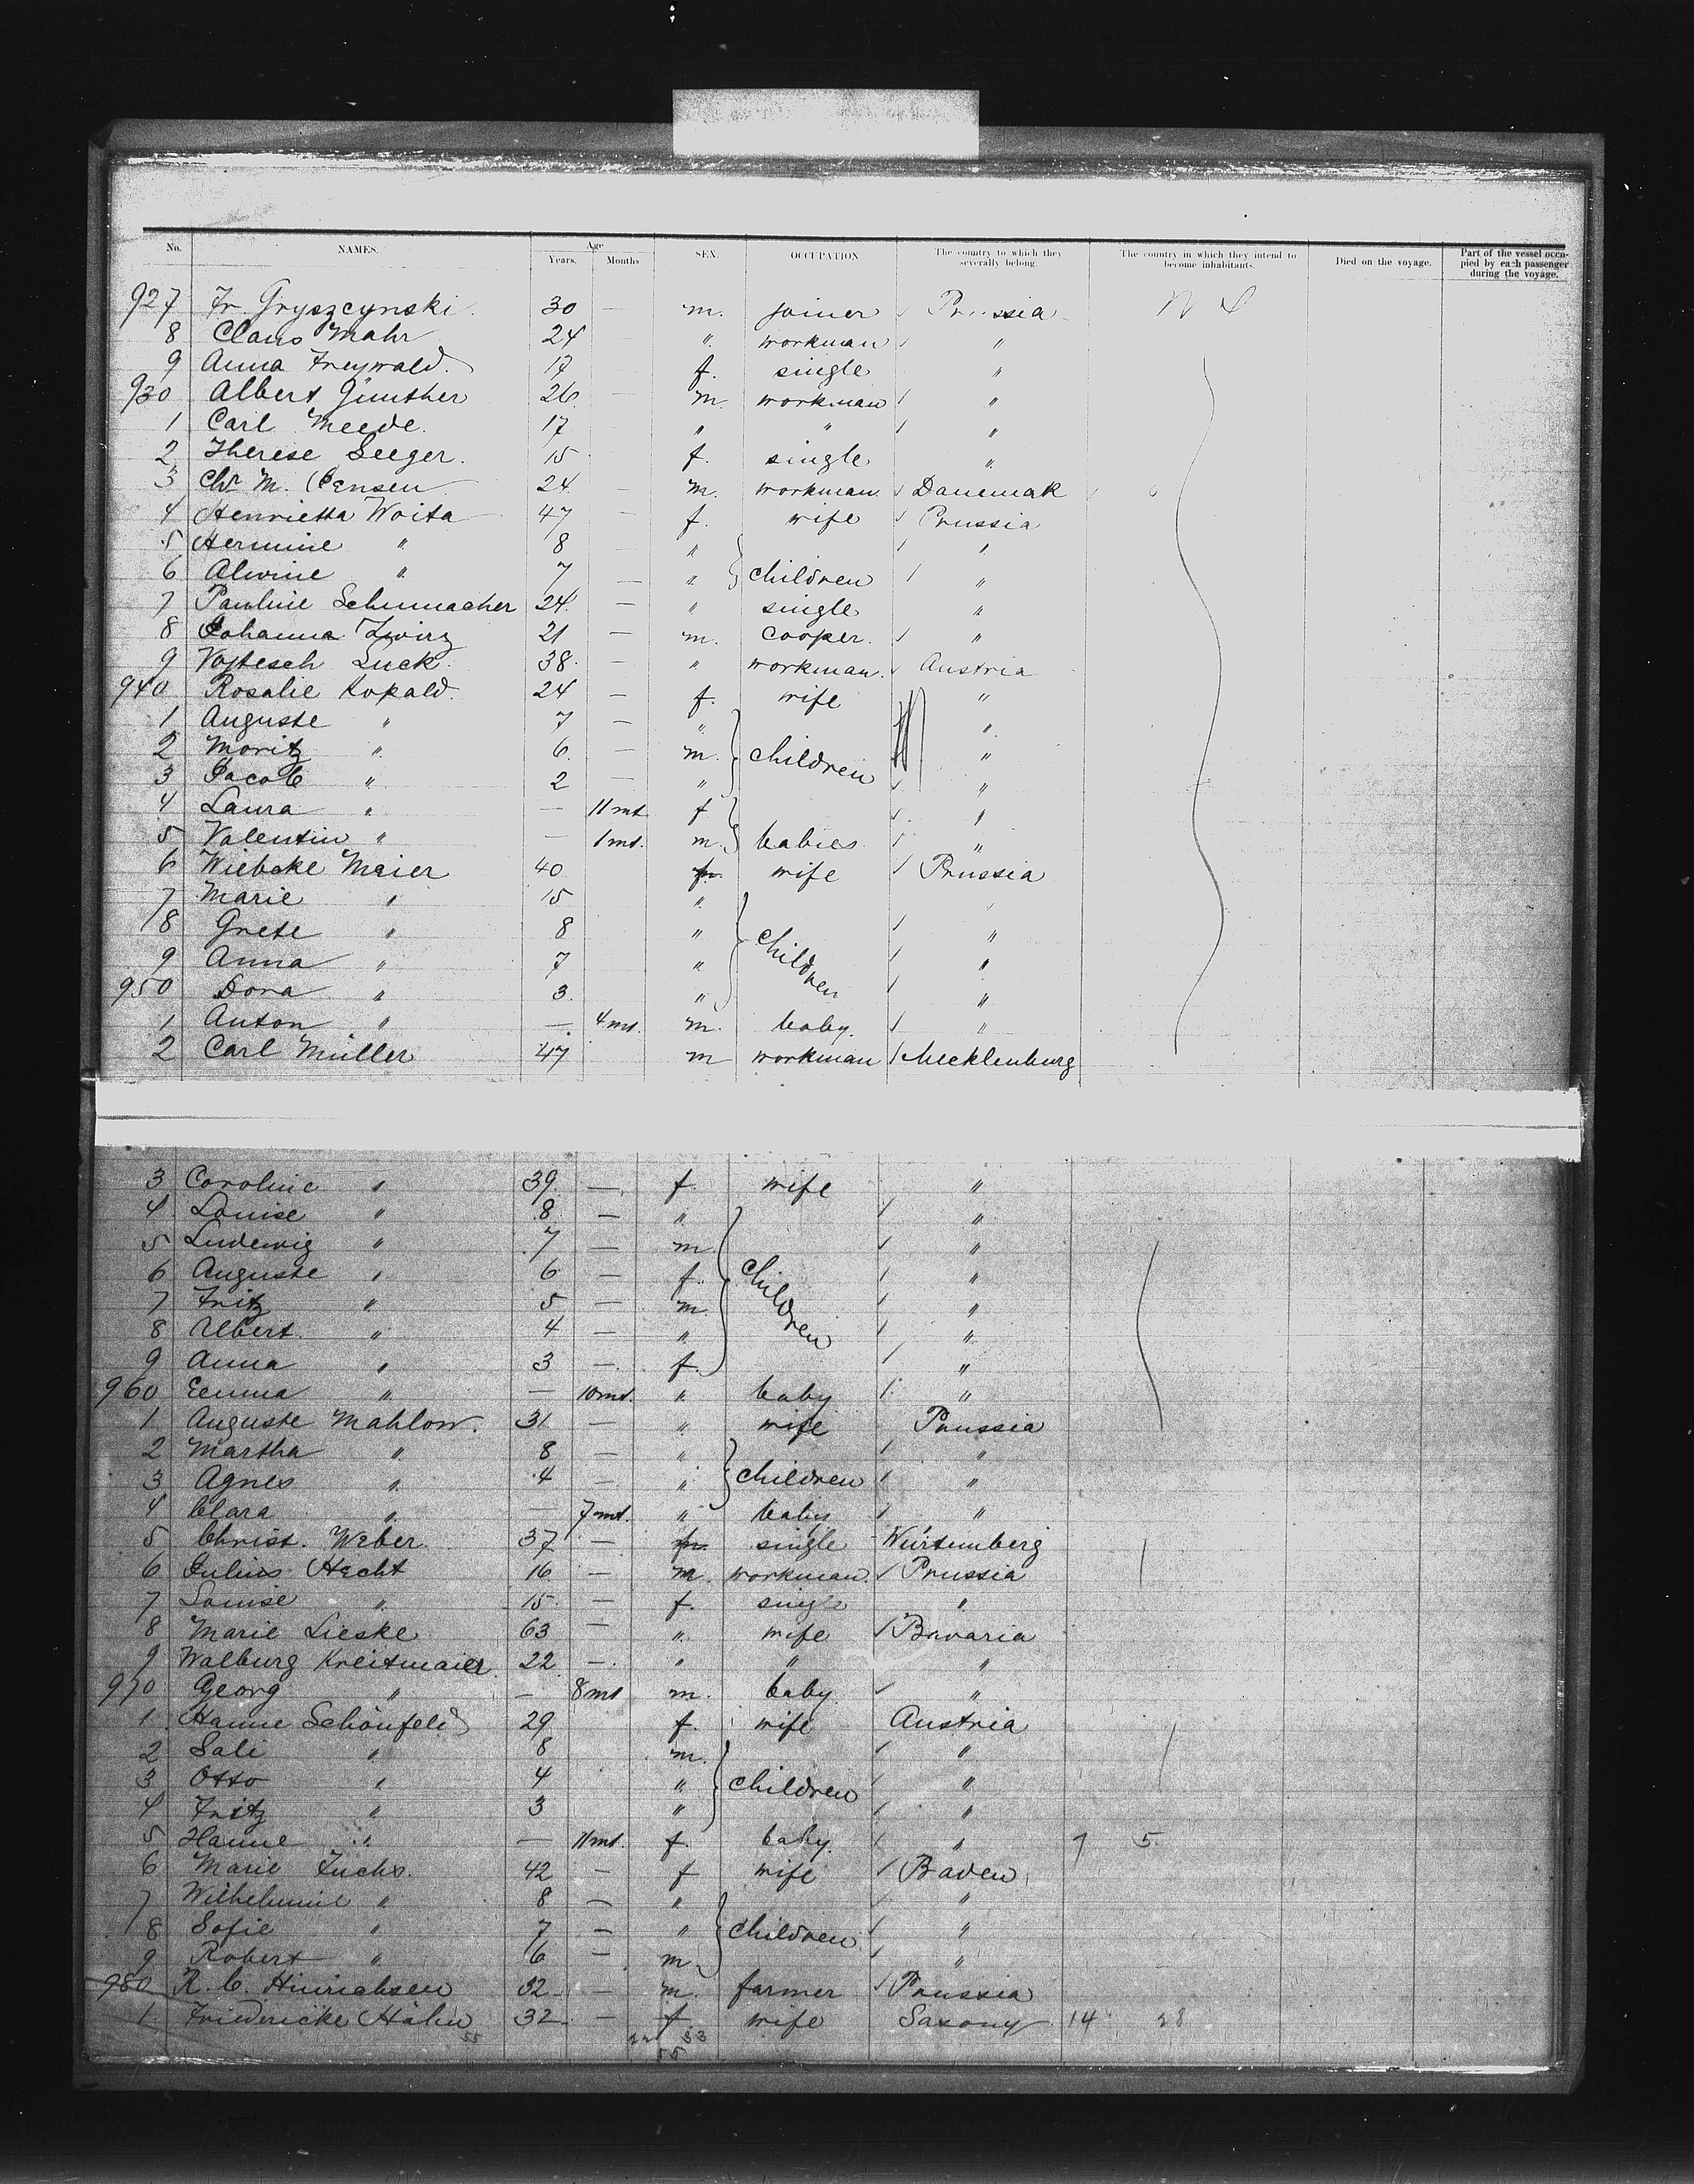 No. NAMES. Age Years. Months. SEX. OCCUPATION The country to which they severally belong. The country in which they intend to become inhabitants. Died on the voyage. Part of the vessel occupied by each passenger during the voyage.
927 Fr. Gryszcynski 30 — m. joiner Prussia
8 Claus Mahr 24 " workman "
9 Anna Freywald 17 f. single "
930 Albert Günther 26 — m. workman "
1 Carl Meede 17 " " "
2 Therese Seeger. 15 f. single "
3 Chr. M. Jensen 24 — m. workman Danemak
4 Henrietta Woita 47 — f. wife Prussia
5 Hermine " 8 — " "
6 Alwine " 7 — " children "
7 Pauline Schumacher 24 — " single "
8 Johanna Zwirz 21 — m. cooper. "
9 Vojtesch Luck 38 — " workman. Austria
940 Rosalie Kopald 24 — f. wife "
1 Auguste " 7 — " "
2 Moritz " 6 — m. children "
3 Jacob " 2 — " "
4 Laura " — 11 mt. f "
5 Valentin " — 1 mt. m. babies "
6 Wiebske Maier 40 f. wife Prussia
7 Marie " 15 " "
8 Grete " 8 " children "
9 Anna " 7 " "
950 Dora " 3 " "
1 Anton " — 4 mt. m. baby. "
2 Carl Müller 47 m workman Mecklenburg
3 Caroline " 39 — f. wife "
4 Louise " 8 — " "
5 Ludewig " 7 — m. "
6 Auguste " 6 — f. children "
7 Fritz " 5 — m. "
8 Albert " 4 — " "
9 Anna " 3 — f. "
960 Emma " — 10 mt. " baby "
1 Auguste Mahlow. 31 — " wife Prussia
2 Martha " 8 — " "
3 Agnes " 4 — " children "
4 Clara " — 7 mt. " baby "
5 Christ. Weber 37 — single Würtemberg
6 Julius Hecht 16 — m. workman. Prussia
7 Louise " 15 — f. single "
8 Marie Lieske 63 — " wife Bavaria
9 Walburg Kreitmaier 22 — " " "
970 Georg " — 8 mt m. baby "
1 Hanne Schönfeld 29 f. wife Austria
2 Sali " 8 m. "
3 Otto " 4 " children "
4 Fritz " 3 " "
5 Hanne " — 11 mt. f. baby " 7 5
6 Marie Fuchs. 42 — f wife Baden
7 Wilhelmine " 8 — " "
8 Sofie " 7 — " children "
9 Robert " 6 — m. "
980 R. C. Hinrichsen 32 — m. farmer Prussia
1 Friedericke Hähn 32 — f wife Saxony 14 28
55 22 33
55